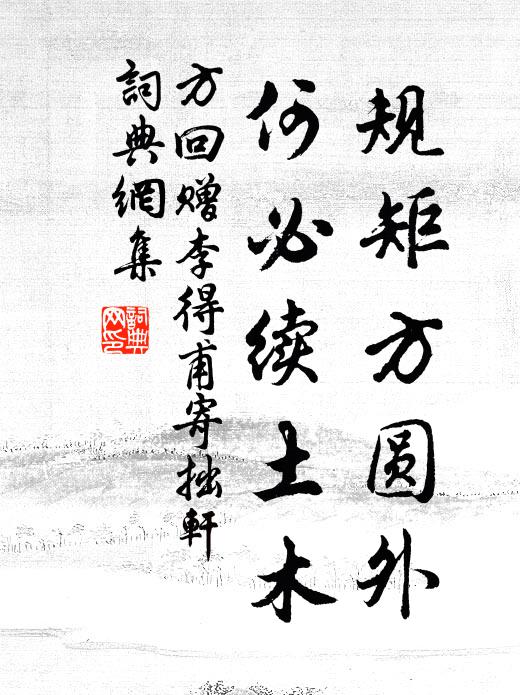 规矩方圆外
何必续土木
方回赠李得甫寄拙軒
詞典網集
詞典网印